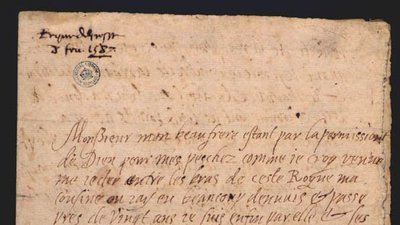 Royne dEscosse
8 feu. 1587
Monssieur mon beau frere estant par la permission
de Dieu pour mes peschez comme ie croy venue
me iecter entre les bras de ceste Royne ma
cousine ou iay eu beaucoup dennuis & passe
pres de vingt ans ie suis enfin par elle & ses